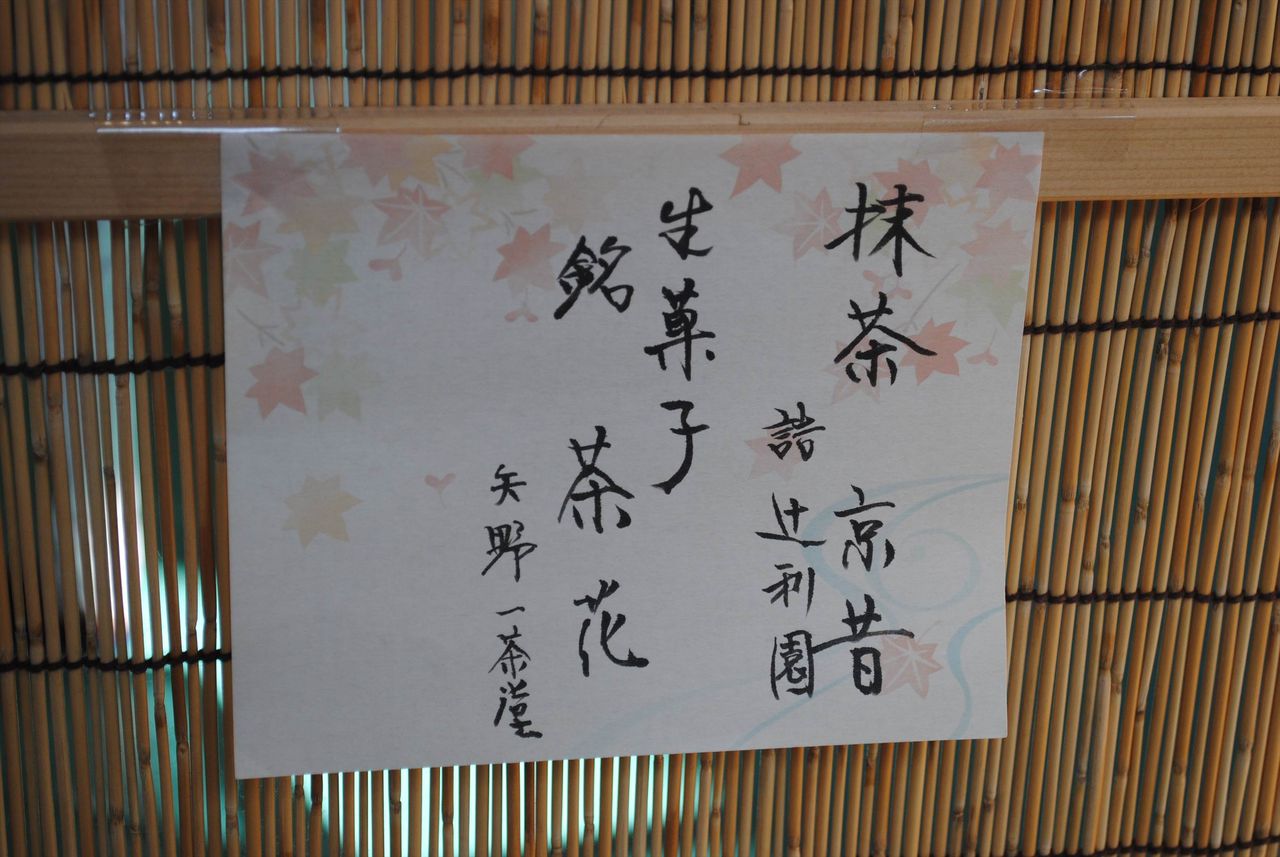 抹茶 京昔
詰 辻利園
生菓子
銘 茶花
矢野一茶堂